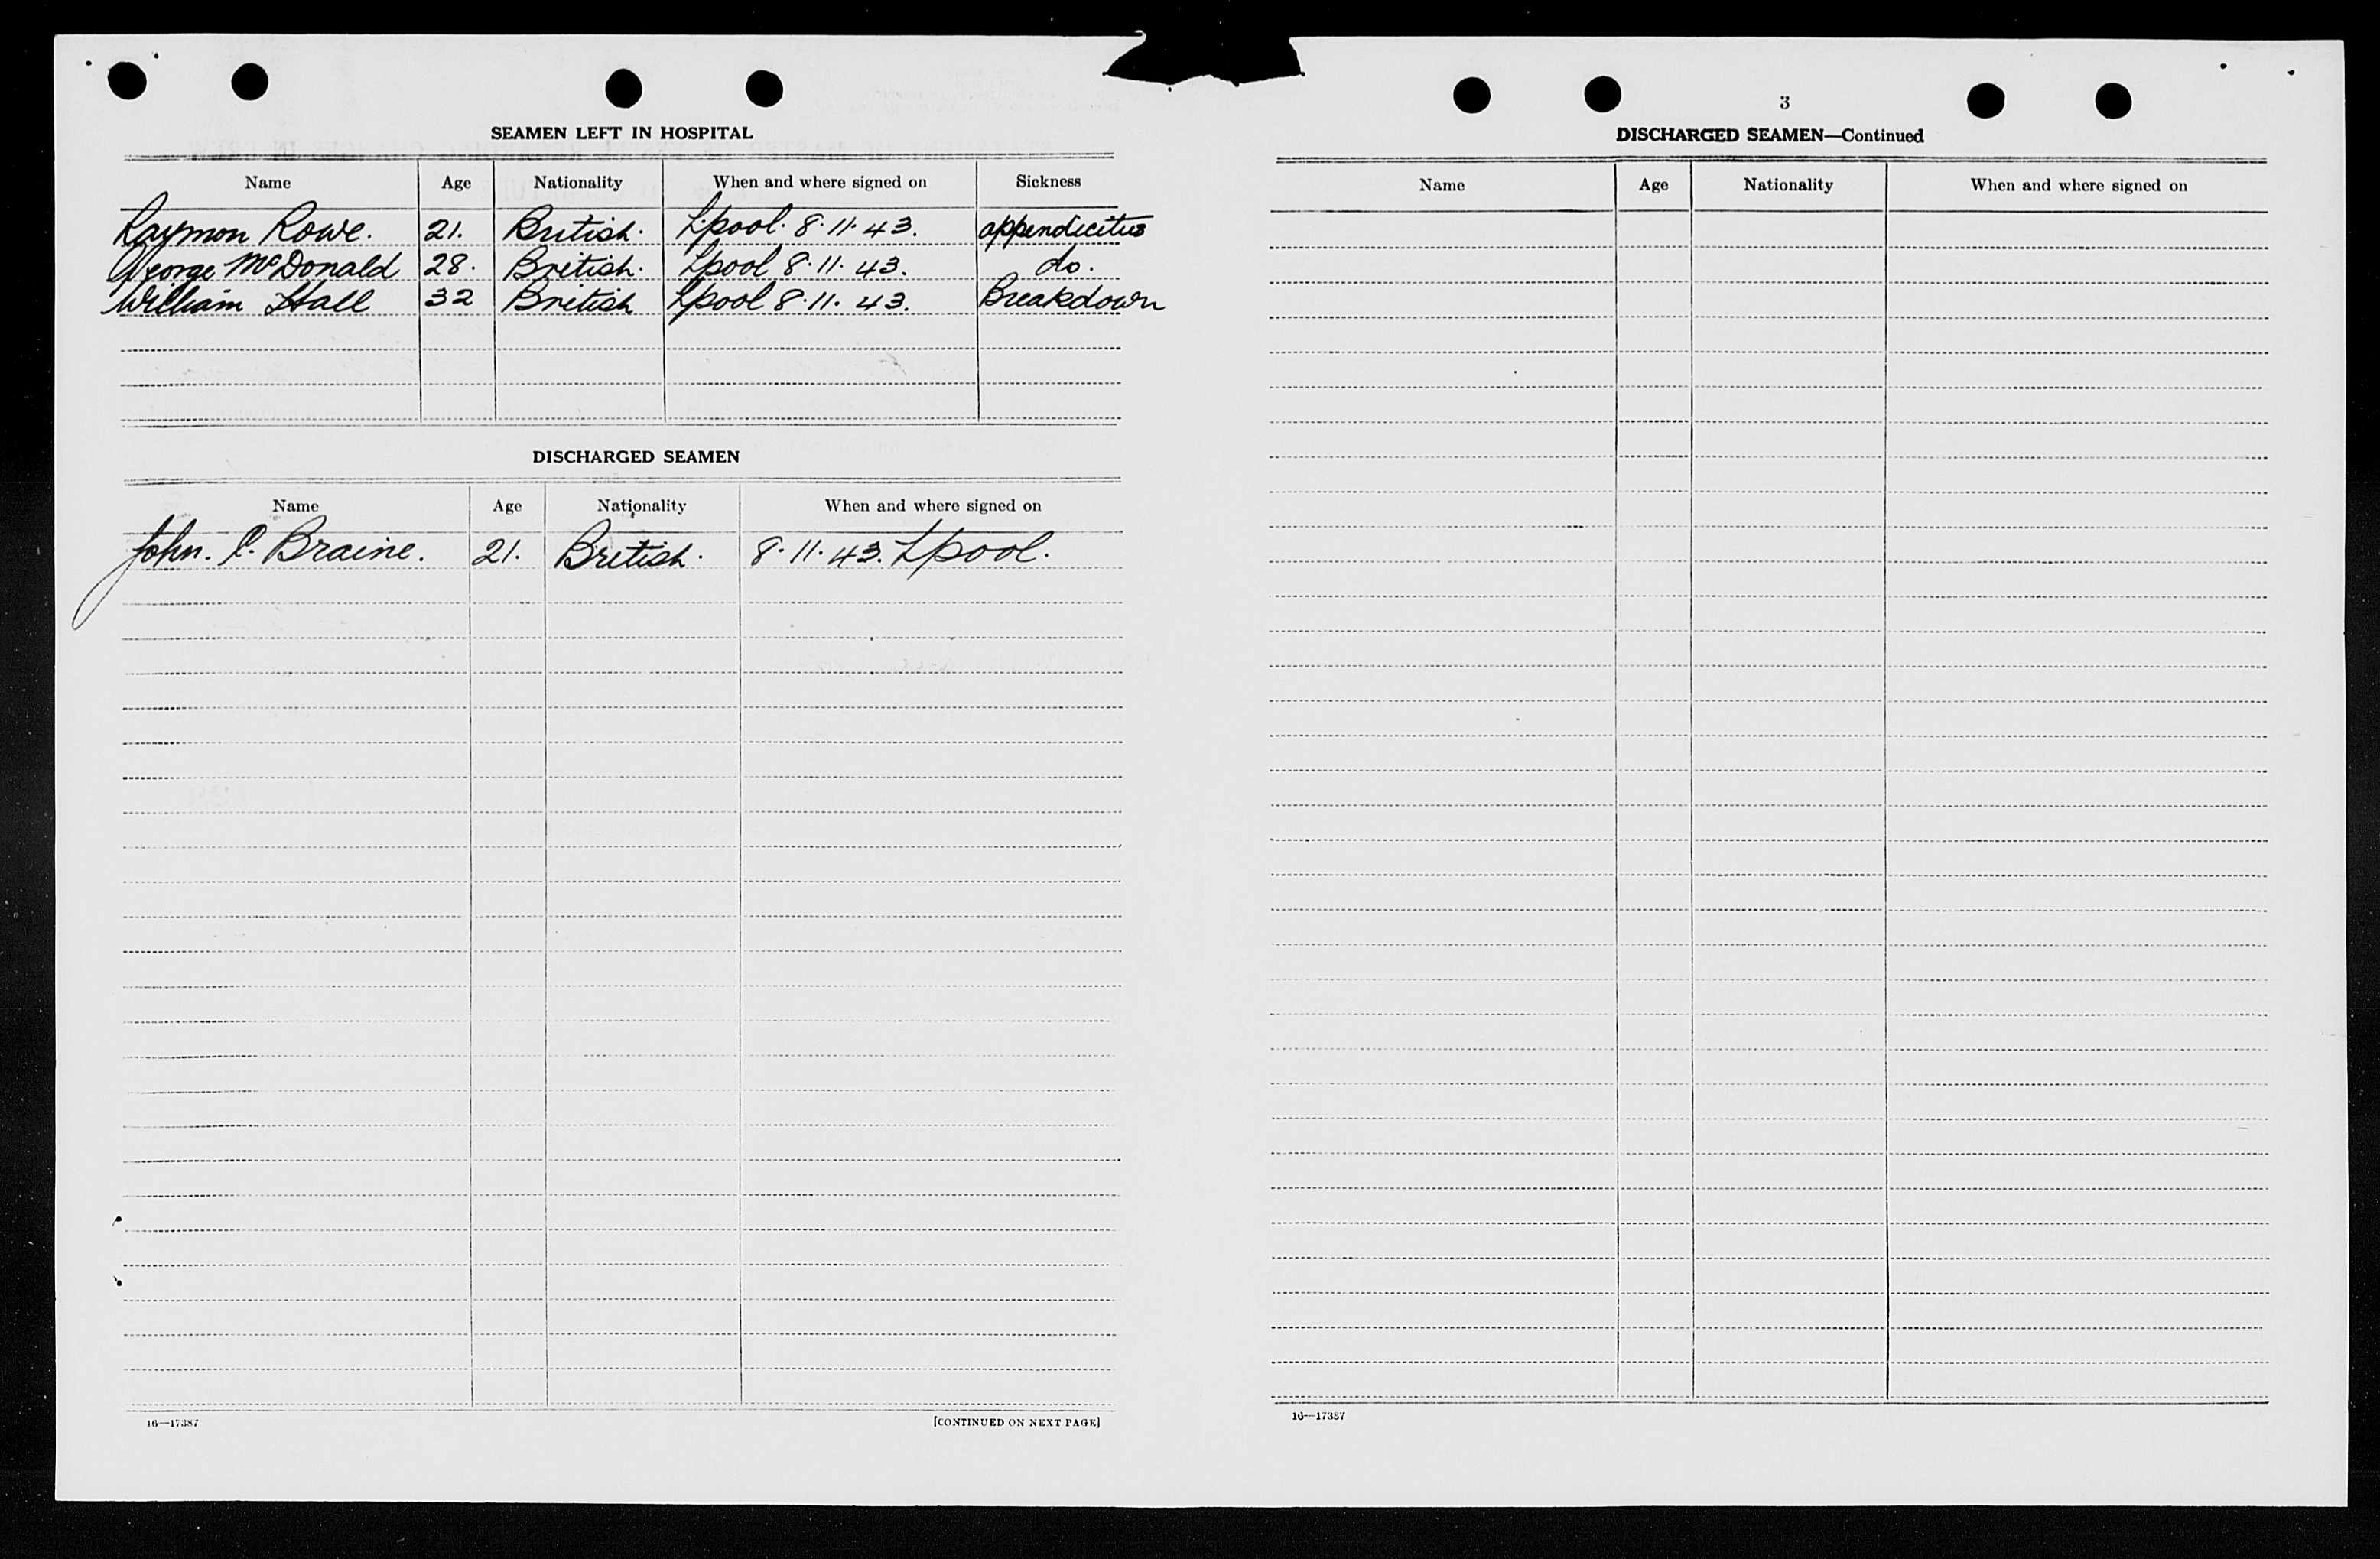 SEAMEN LEFT IN HOSPITAL
Name Age Nationality When and where signed on Sickness
Raymon Rowe. 21. British. Lpool. 8.11.43. appendicitus
George McDonald 28. British. Lpool 8.11.43. do.
William Hall 32 British Lpool 8.11.43. Breakdown
DISCHARGED SEAMEN
Name Age Nationality When and where signed on
John. C. Braine. 21. British. 8.11.43. Lpool.
16—17387 [CONTINUED ON NEXT PAGE]
3
DISCHARGED SEAMEN—Continued
Name Age Nationality When and where signed on
16—17387